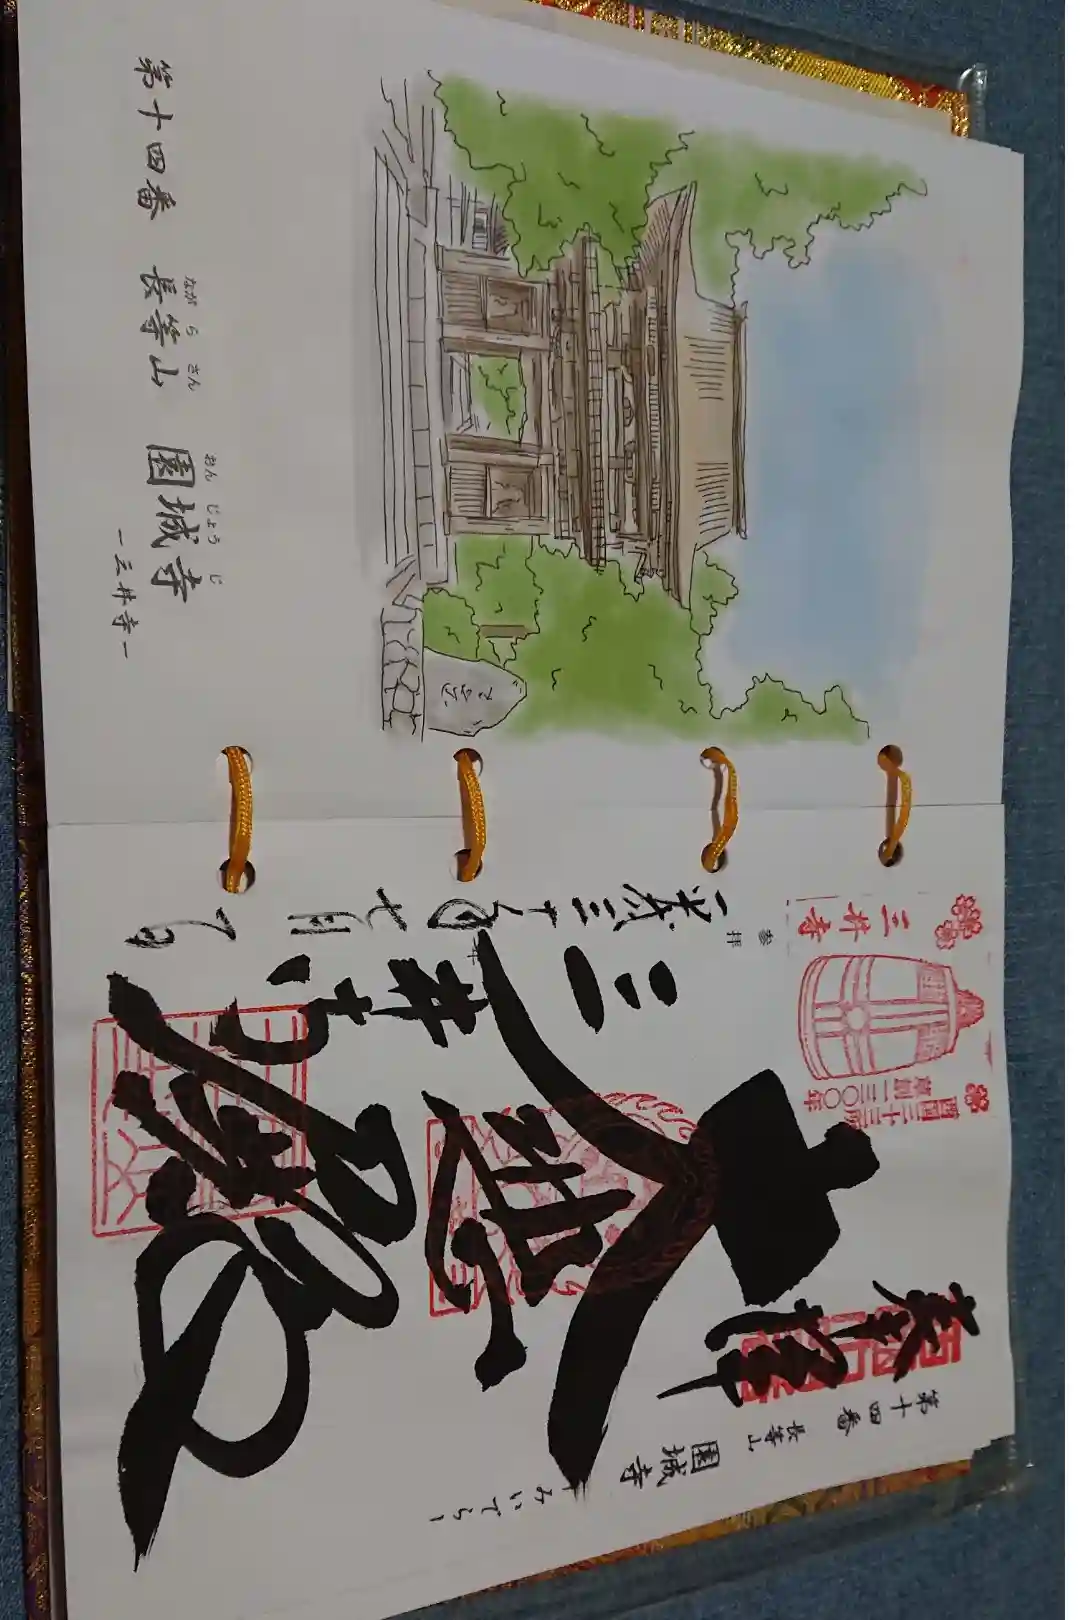 第十四番 長等山 園城寺
ながらさん おんじょうじ
-三井寺-
三井寺
西国三十三所
草創一三〇〇年
奉拝
第十四番 長等山 園城寺
-みいでら-
大悲殿
三井寺
参拝
平成三十年七月
日